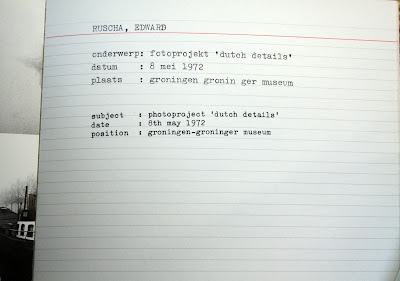 RUSCHA, EDWARD
onderwerp: fotoprojekt 'dutch details'
datum : 8 mei 1972
plaats : groningen gronin ger museum
subject : photoproject 'dutch details'
date : 8th may 1972
position : groningen-groninger museum